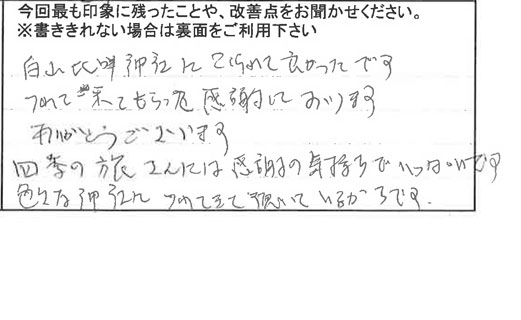 今回最も印象に残ったことや、改善点をお聞かせください。
※書ききれない場合は裏面をご利用下さい
白山比咩神社に これて良かったです
つれて来てもらって感謝して おります
ありがとうございます
四季の旅さんには感謝の気持ちでいっぱいです
色々な神社に つれてきて頂いているからです.